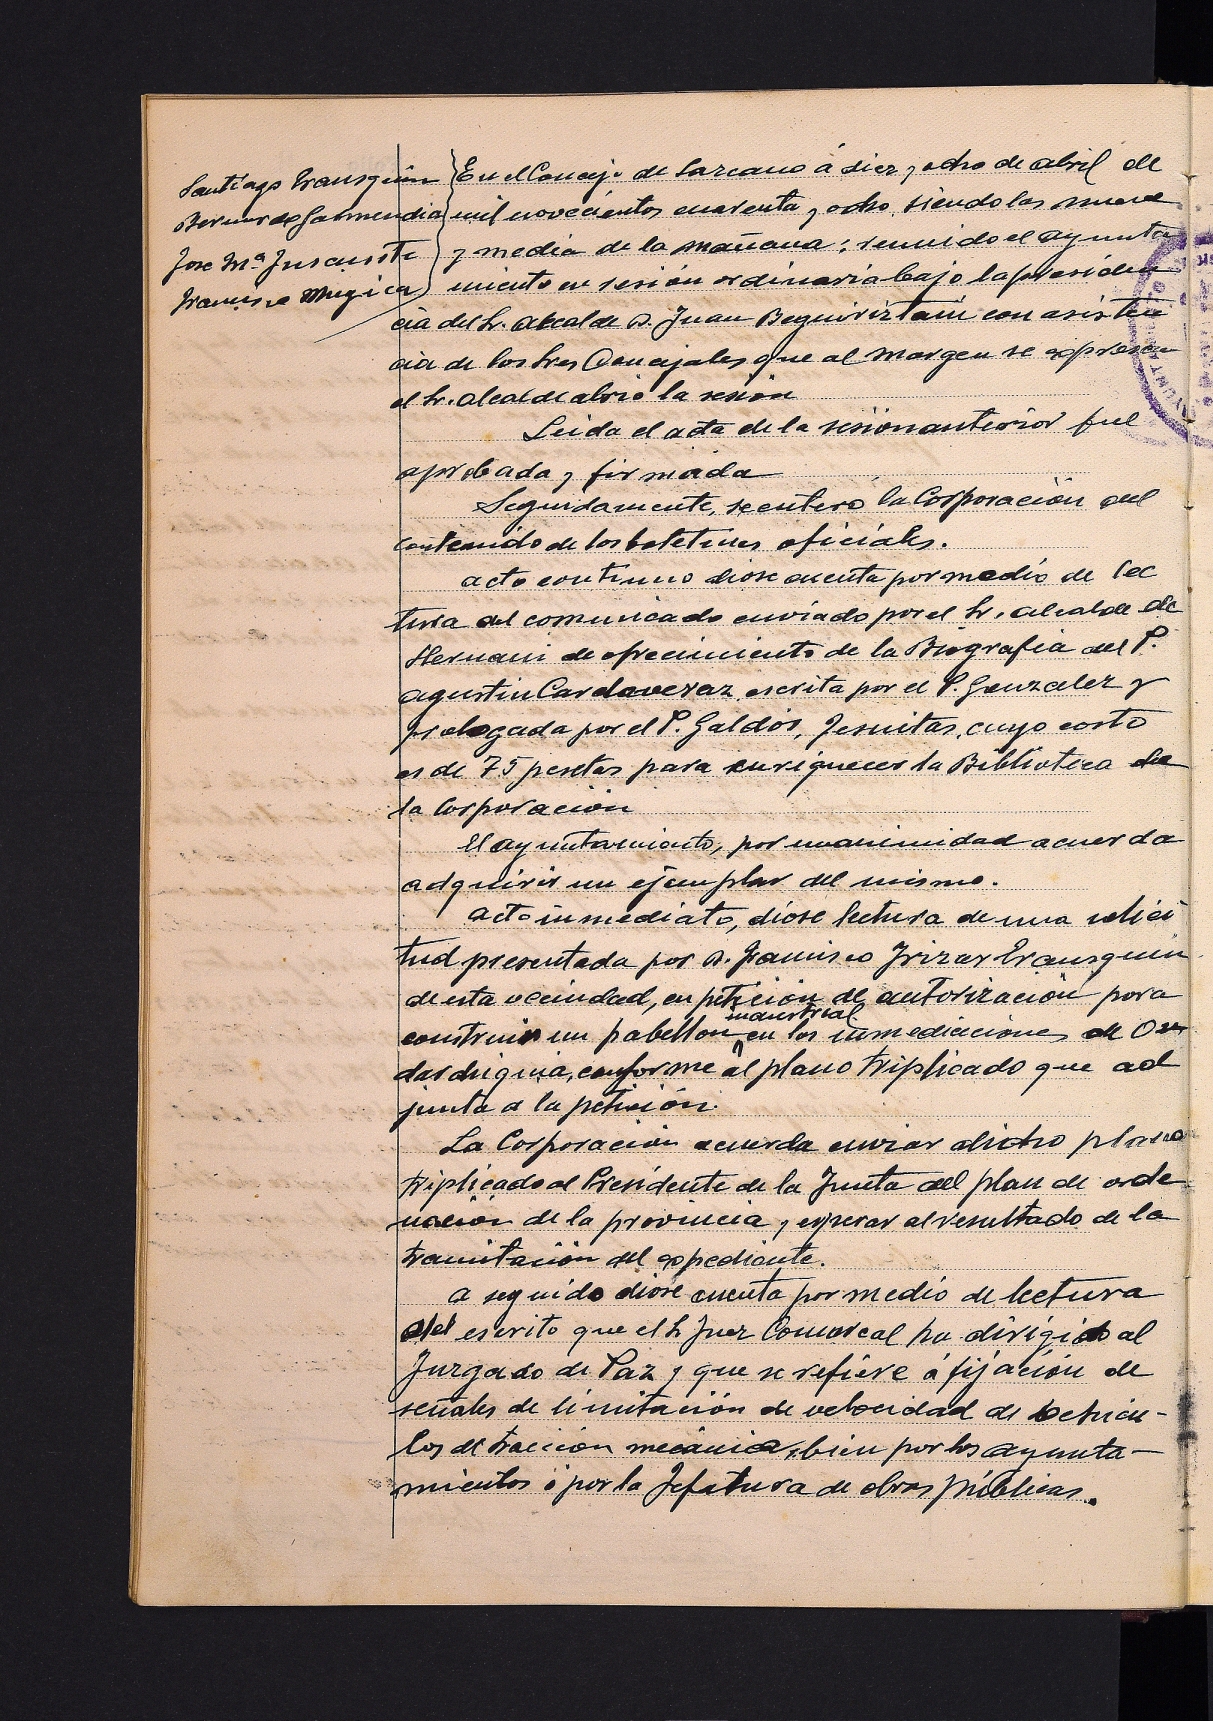 Santiago Eransquin
Bernardo Garmendia
Jose Mª Insausti
Francisco Mugica
En el Concejo de Lazcano á diez y ocho de abril de
mil novecientos cuarenta y ocho, siendo las nueve
y media de la mañana; reunido el ayunta
miento en sesión ordinaria bajo la presiden
cia del Sr. Alcalde D. Juan Beguiristain con asisten
cia de los tres Concejales que al margen se expresan
el Sr. Alcalde abrió la sesión
Leida el acta de la sesión anterior fue
aprobada y firmada
Seguidamente, se enteró la Corporación del
contenido de los boletines oficiales.
acto continuo diose cuenta por medio de lec
tura del comunicado enviado por el Sr. alcalde de
Hernani de ofrecimiento de la Biografia del P.
Agustin Cardaveraz, escrita por el P. Gonzalez y
prologada por el P. Galdós, Jesuitas, cuyo costo
es de 75 pesetas para enriquecer la Biblioteca de
la Corporación
El ayuntamiento, por unanimidad acuerda
adquirir un ejemplar del mismo.
acto inmediato, diose lectura de una solici
tud presentada por D. Francisco Irizar Eransquin
de esta vecindad, en petición de autorización para
construir un pabellon industrial en los inmediaciones de
conforme al plano triplicado que ad
junta a la petición.
La Corporación acuerda enviar dicho plano
triplicado al Presidente de la Junta del plan de orde
nación de la provincia y esperar al resultado de la
tramitación del expediente.
a seguido diose cuenta por medio de lectura
del escrito que el Sr Juez Comarcal ha dirigido al
Juzgado de Paz y que se refiere á fijación de
señales de limitación de velocidad de vehicu-
los de tracción mecánica, bien por los ayunta-
mientos ó por la Jefatura de obras públicas.
AYUNTAMIENTO